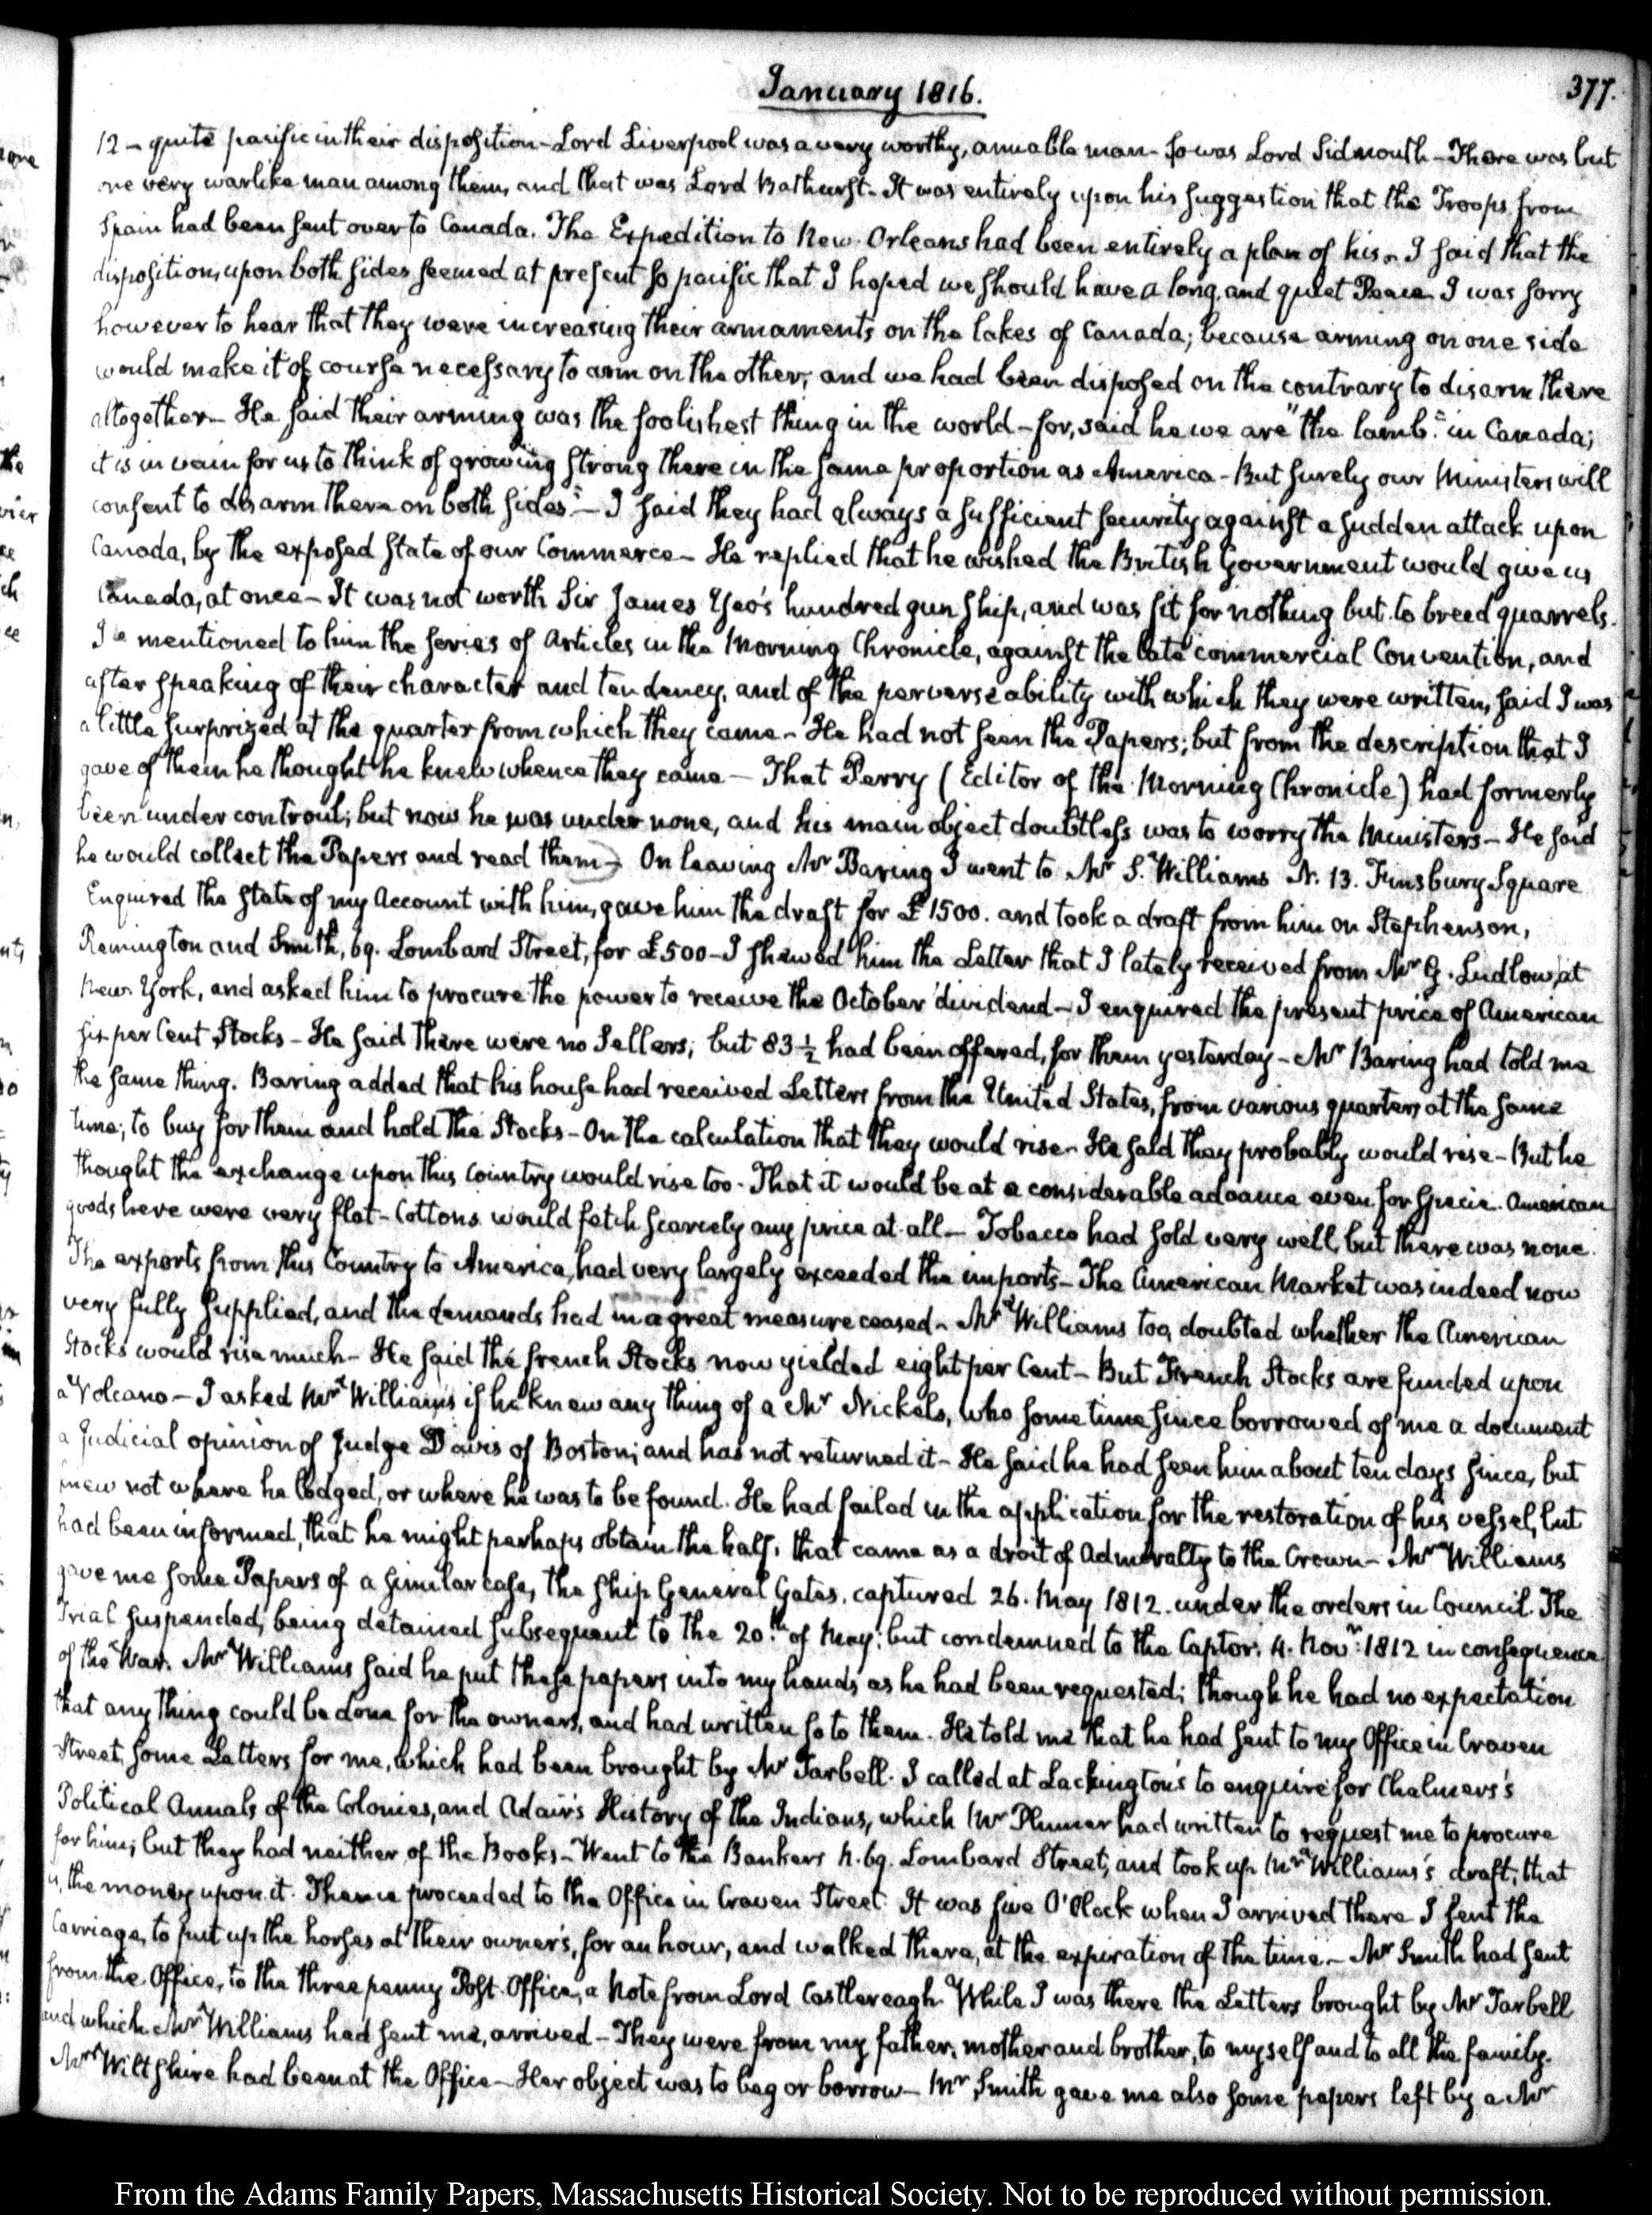 January 1816.
377.
12 — quite pacific in their disposition — Lord Liverpool was a very worthy, amiable man — so was Lord Sidmouth — There was but
one very warlike man among them, and that was Lord Bathurst — It was entirely upon his suggestion that the Troops from
Spain had been sent over to Canada. The Expedition to New-Orleans had been entirely a plan of his — I said that the
dispositions upon both sides seemed at present so pacific that I hoped we should have a long, and quiet Peace. I was sorry
however to hear that they were increasing their armaments on the lakes of Canada; because arming on one side
would make it of course necessary to arm on the other; and we had been disposed on the contrary to disarm there
altogether — He said their arming was the foolishest thing in the world — for, said he we are "the lamb" in Canada;
it is in vain for us to think of growing strong there in the same proportion as America — But surely our Ministers will
consent to disarm there on both sides" — I said they had always a sufficient security against a sudden attack upon
Canada, by the exposed state of our Commerce — He replied that he wished the British Government would give us
Canada, at once — It was not worth Sir James Yeo's hundred gun ship, and was fit for nothing but to breed quarrels.
I mentioned to him the series of Articles in the Morning Chronicle, against the late commercial Convention, and
after speaking of their character and tendency, and of the perverse ability with which they were written, said I was
a little surprized at the quarter from which they came — He had not seen the Papers; but from the description that I
gave of them he thought he knew whence they came — That Perry (Editor of the Morning Chronicle) had formerly
been under controul; but now he was under none, and his main object doubtless was to worry the Ministers — He said
he would collect the Papers and read them — On leaving Mr Baring I went to Mr S. Williams N. 13. Finsbury Square
Enquired the state of my Account with him, gave him the draft for £1500. and took a draft from him on Stephenson,
Remington and Smith, 69. Lombard Street, for £500 — I shewed him the Letter that I lately received from Mr G. Ludlow, at
New-York, and asked him to procure the power to receive the October dividend — I enquired the present price of American
six per Cent Stocks — He said there were no Sellers; but 83½ had been offered, for them yesterday — Mr Baring had told me
the same thing. Baring added that his house had received Letters from the United States, from various quarters at the same
time; to buy for them and hold the Stocks — On the calculation that they would rise — He said they probably would rise — But he
thought the exchange upon this Country would rise too — That it would be at a considerable advance even for specie. American
goods here were very flat — Cottons would fetch scarcely any price at all — Tobacco had sold very well, but there was none.
The exports from this Country to America, had very largely exceeded the imports — The American Market was indeed now
very fully supplied, and the demands had in a great measure ceased — Mr Williams too, doubted whether the American
Stocks would rise much — He said the French Stocks now yielded eight per Cent — But French Stocks are funded upon
a Volcano — I asked Mr Williams if he knew any thing of a Mr Nickels, who some time since borrowed of me a document
a Judicial opinion of Judge Davis of Boston; and has not returned it — He said he had seen him about ten days since, but
knew not where he lodged, or where he was to be found. He had failed in the application for the restoration of his vessel, but
had been informed, that he might perhaps obtain the half, that came as a droit of Admiralty to the Crown — Mr Williams
gave me some Papers of a similar case, the ship General Gates, captured 26. May 1812. under the orders in Council. The
Trial suspended, being detained subsequent to the 20.th of May; but condemned to the Captor. 4. Novr: 1812 in consequence
of the War. Mr Williams said he put these papers into my hands, as he had been requested; though he had no expectation
that any thing could be done for the owners, and had written so to them. He told me that he had sent to my Office in Craven
Street, some Letters for me, which had been brought by Mr Tarbell. I called at Lackington's to enquire for Chalmers's
Political Annals of the Colonies, and Adair's History of the Indians, which Mr Plumer had written to request me to procure
for him; but they had neither of the Books — Went to the Bankers N. 69. Lombard Street, and took up Mr Williams's draft; that
is, the money upon it. Thence proceeded to the Office in Craven Street. It was five O'Clock when I arrived there I sent the
Carriage, to put up the horses at their owner's, for an hour, and walked there, at the expiration of the time — Mr Smith had sent
from the Office, to the three penny Post-Office, a Note from Lord Castlereagh. While I was there the Letters brought by Mr Tarbell
and which Mr Williams had sent me, arrived — They were from my father, mother and brother, to myself and to all the family.
Mrs Wiltshire had been at the Office — Her object was to beg or borrow — Mr Smith gave me also some papers left by a Mr
From the Adams Family Papers, Massachusetts Historical Society. Not to be reproduced without permission.